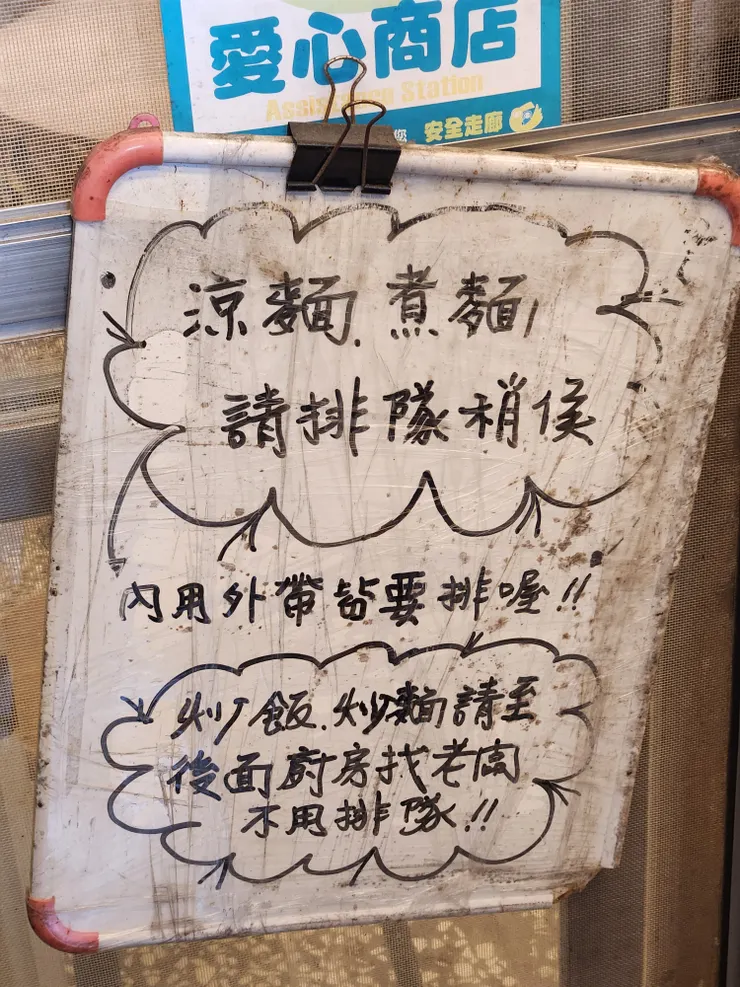 愛心商店
Assistance Station
您 安全走廊
涼麵.煮麵
請排隊稍侯
內用外帶皆要排喔!!
炒飯.炒麵請至
後面廚房找老闆
不用排隊!!